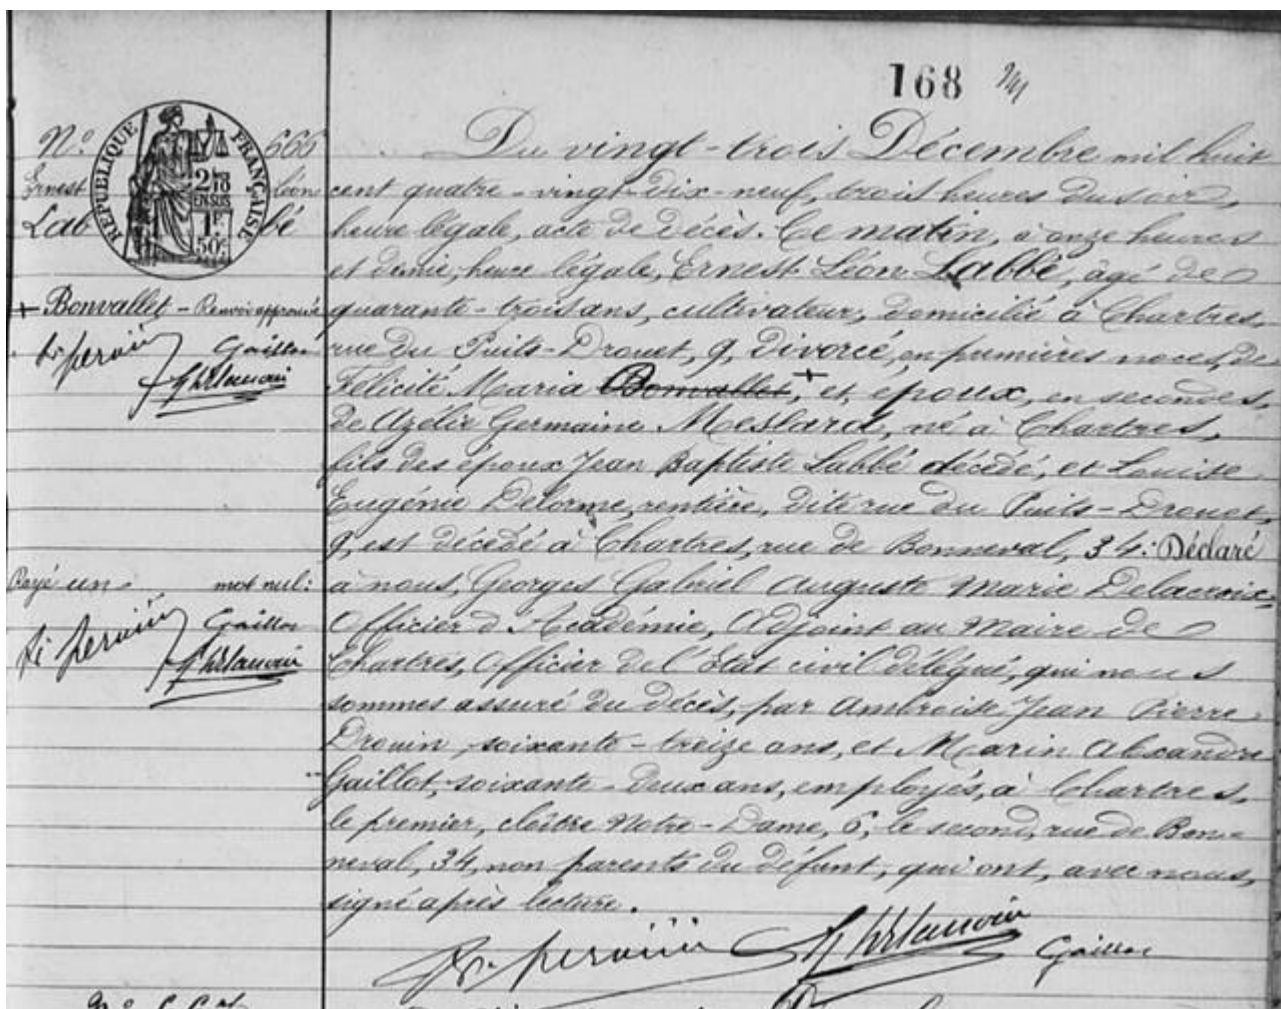 168
N° 666
Ernest Léon
Labbé
RÉPUBLIQUE FRANÇAISE
2/10 EN SUS
1F 50c
+ Bonvallet - Renvoi approuvé
Gaillot
Rayé un mot nul:
Gaillot
Du vingt-trois Décembre mil huit
cent quatre-vingt-dix-neuf, trois heures du soir,
heure légale, acte de décès. Ce matin, à onze heures
et demie, heure légale, Ernest Léon Labbé, âgé de
quarante-trois ans, cultivateur, domicilié à Chartres,
rue du Puits-Drouet, 9, Divorcé, en premières noces, de
Félicité Maria Bonvallet, + et, époux, en secondes,
de Azélie Germaine Meslard, né à Chartres,
fils des époux Jean Baptiste Labbé décédé, et Louise
Eugénie Delorme, rentière, dite rue du Puits-Drouet,
9, est décédé à Chartres, rue de Bonneval, 34. Déclaré
à nous, Georges Gabriel Auguste Marie Delacroix,
Officier d'Académie, Adjoint au Maire de
Chartres, Officier de l'Etat civil délégué, qui nous
sommes assuré du décès, par Ambroise Jean Pierre
Drouin, soixante-treize ans, et Marin Alexandre
Gaillot, soixante-deux ans, employés, à Chartres,
le premier, cloître Notre-Dame, 6, le second, rue de Bon-
neval, 34, non parents du défunt, qui ont, avec nous,
signé après lecture.
Gaillot